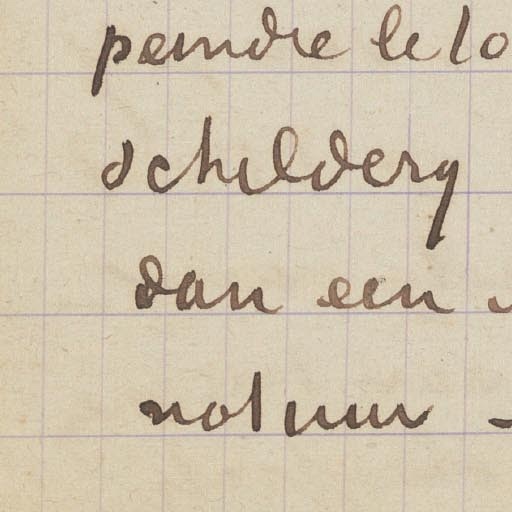 peindre le lo
schildery
dan een
natuur -